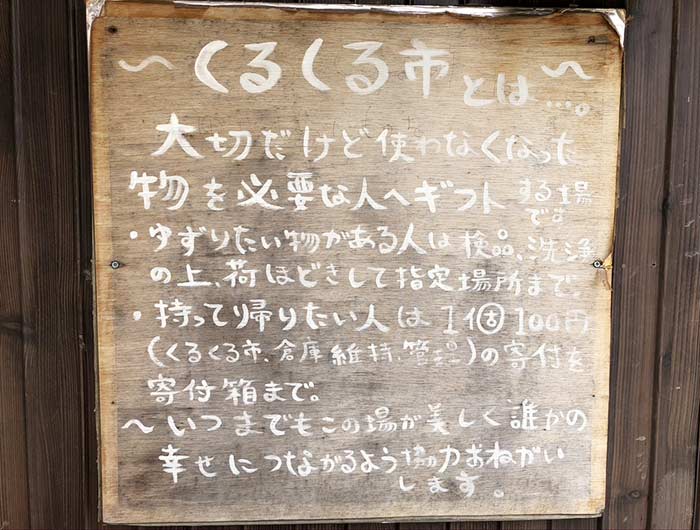 〜くるくる市とは〜….。
大切だけど使わなくなった
物を必要な人へギフトする場です
・ゆずりたい物がある人は検品、洗浄
の上、荷ほどきして指定場所まで。
・持って帰りたい人は1個100円
(くるくる市、倉庫維持、管理)の寄付を
寄付箱まで。
〜いつまでもこの場が美しく誰かの
幸せにつながるよう協力おねがい
します。